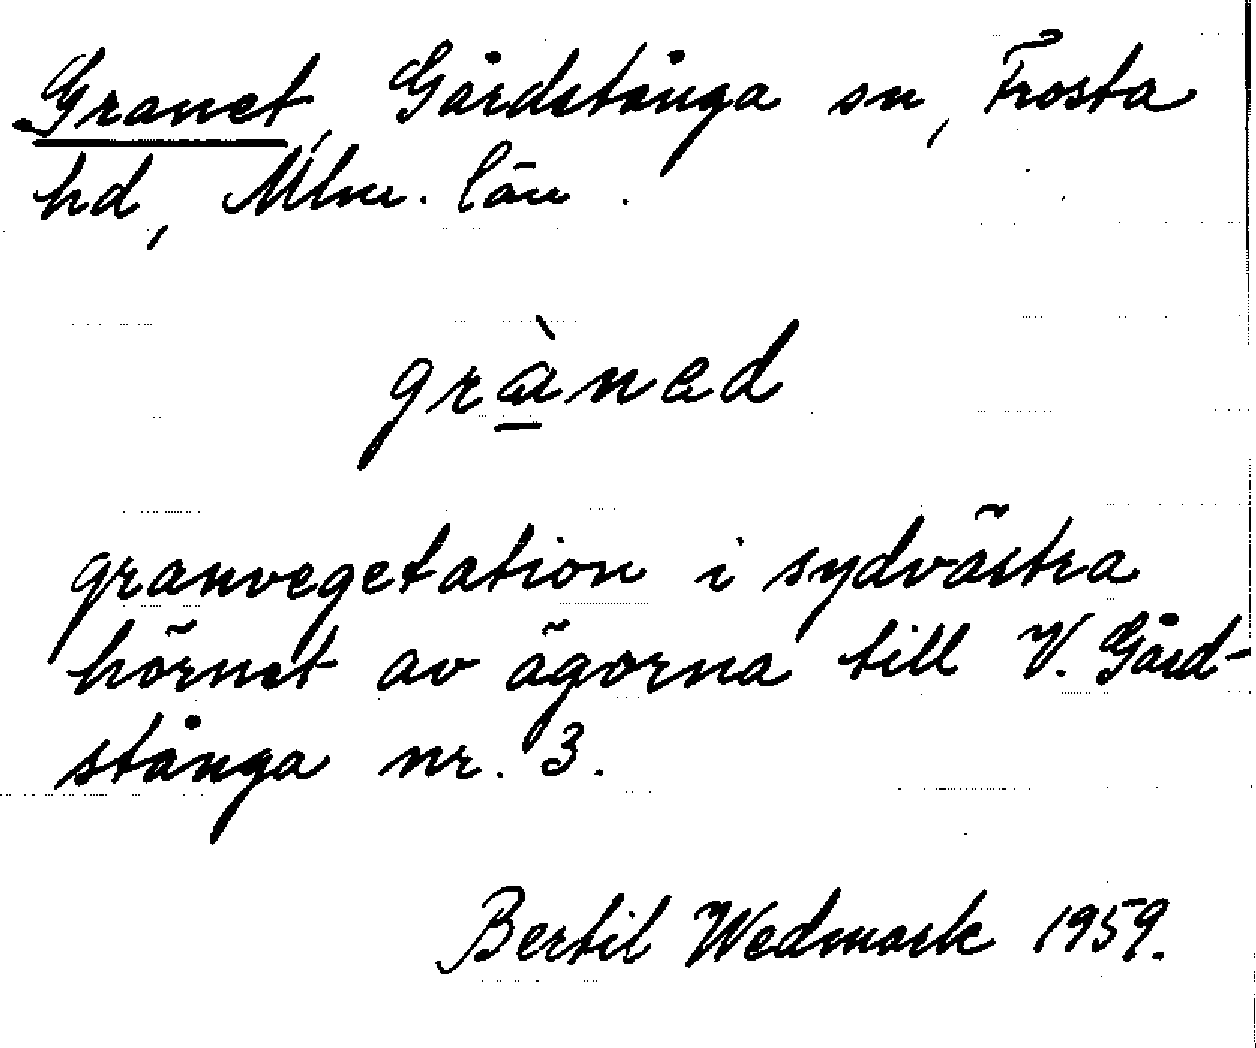 Granet, Gårdstånga sn, Frosta
hd, Mlm. län.
grànad
granvegetation i sydvästra
hörnet av ägorna till V. Gård-
stånga nr. 3.
Bertil Wedmark 1959.